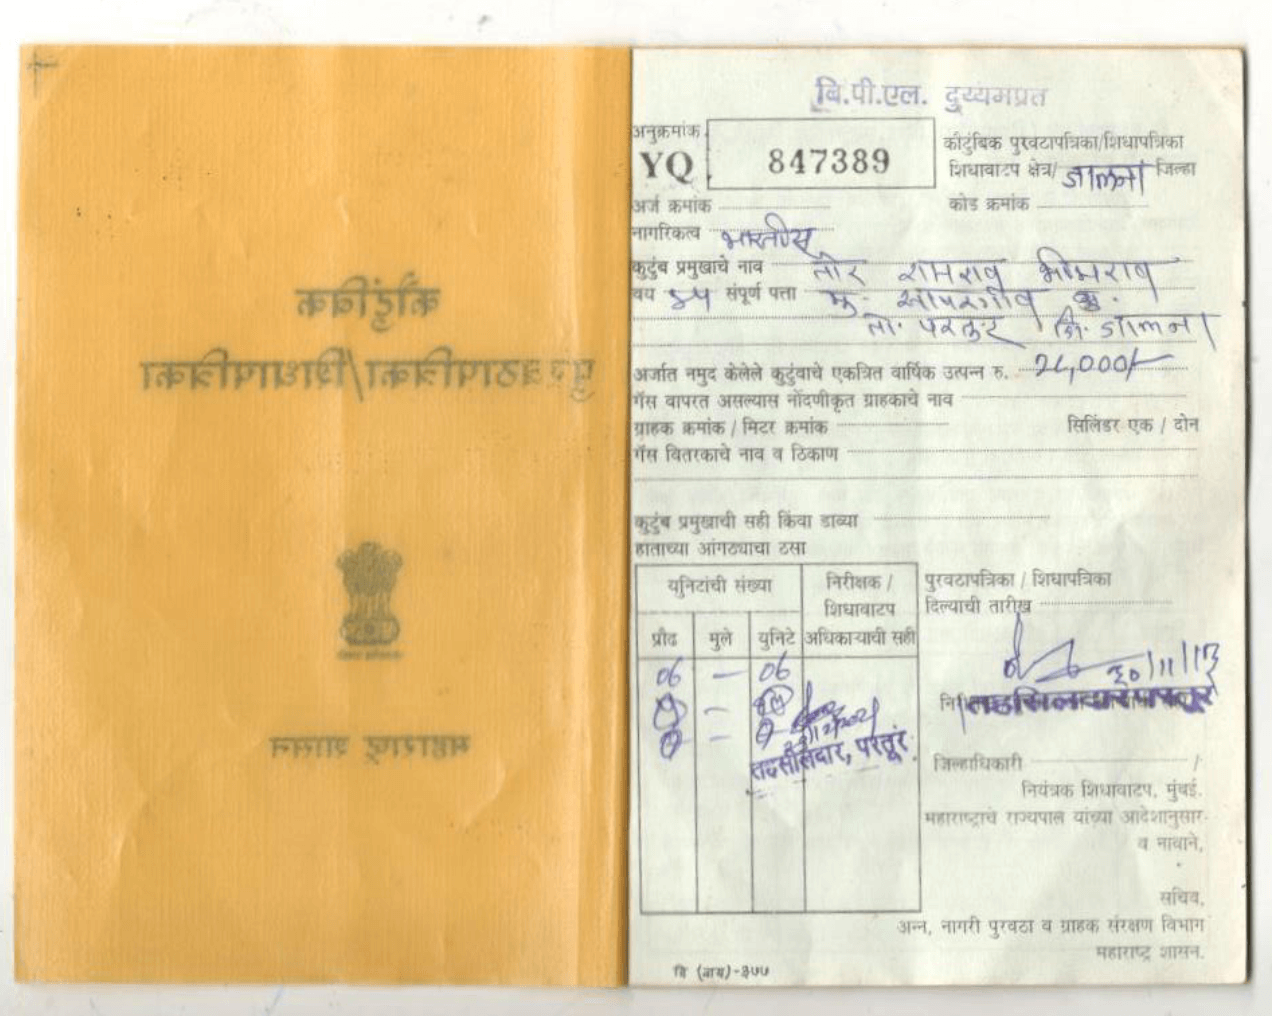 कौटुंबिक
पुरवठापत्रिका/शिधापत्रिका
महाराष्ट्र शासन
बि.पी.एल. दुय्यमप्रत
अनुक्रमांक
YQ 847389
कौटुंबिक पुरवठापत्रिका/शिधापत्रिका
शिधावाटप क्षेत्र/ जालना जिल्हा
अर्ज क्रमांक
कोड क्रमांक
नागरिकत्व भारतीय
कुटुंब प्रमुखाचे नाव तोर रामराव भीमराव
वय ४५ संपूर्ण पत्ता मु.
ता. परतूर जि. जालना
अर्जात नमुद केलेले कुटुंवाचे एकत्रित वार्षिक उत्पन्न रु.
गॅस वापरत असल्यास नोंदणीकृत ग्राहकाचे नाव
ग्राहक क्रमांक / मिटर क्रमांक सिलिंडर एक / दोन
गॅस वितरकाचे नाव व ठिकाण
कुटुंब प्रमुखाची सही किंवा डाव्या
हाताच्या आंगठ्याचा ठसा
युनिटांची संख्या निरीक्षक / शिधावाटप अधिकाऱ्याची सही
प्रौढ मुले युनिटे
06 — 06
तहसीलदार, परतूर
पुरवठापत्रिका / शिधापत्रिका
दिल्याची तारीख
३०/११/१३
तहसिलदार परतुर
जिल्हाधिकारी /
नियंत्रक शिधावाटप, मुंबई.
महाराष्ट्राचे राज्यपाल यांच्या आदेशानुसार
व नावाने,
सचिव,
अन्न, नागरी पुरवठा व ग्राहक संरक्षण विभाग
महाराष्ट्र शासन.
वि (वाय)-३७७